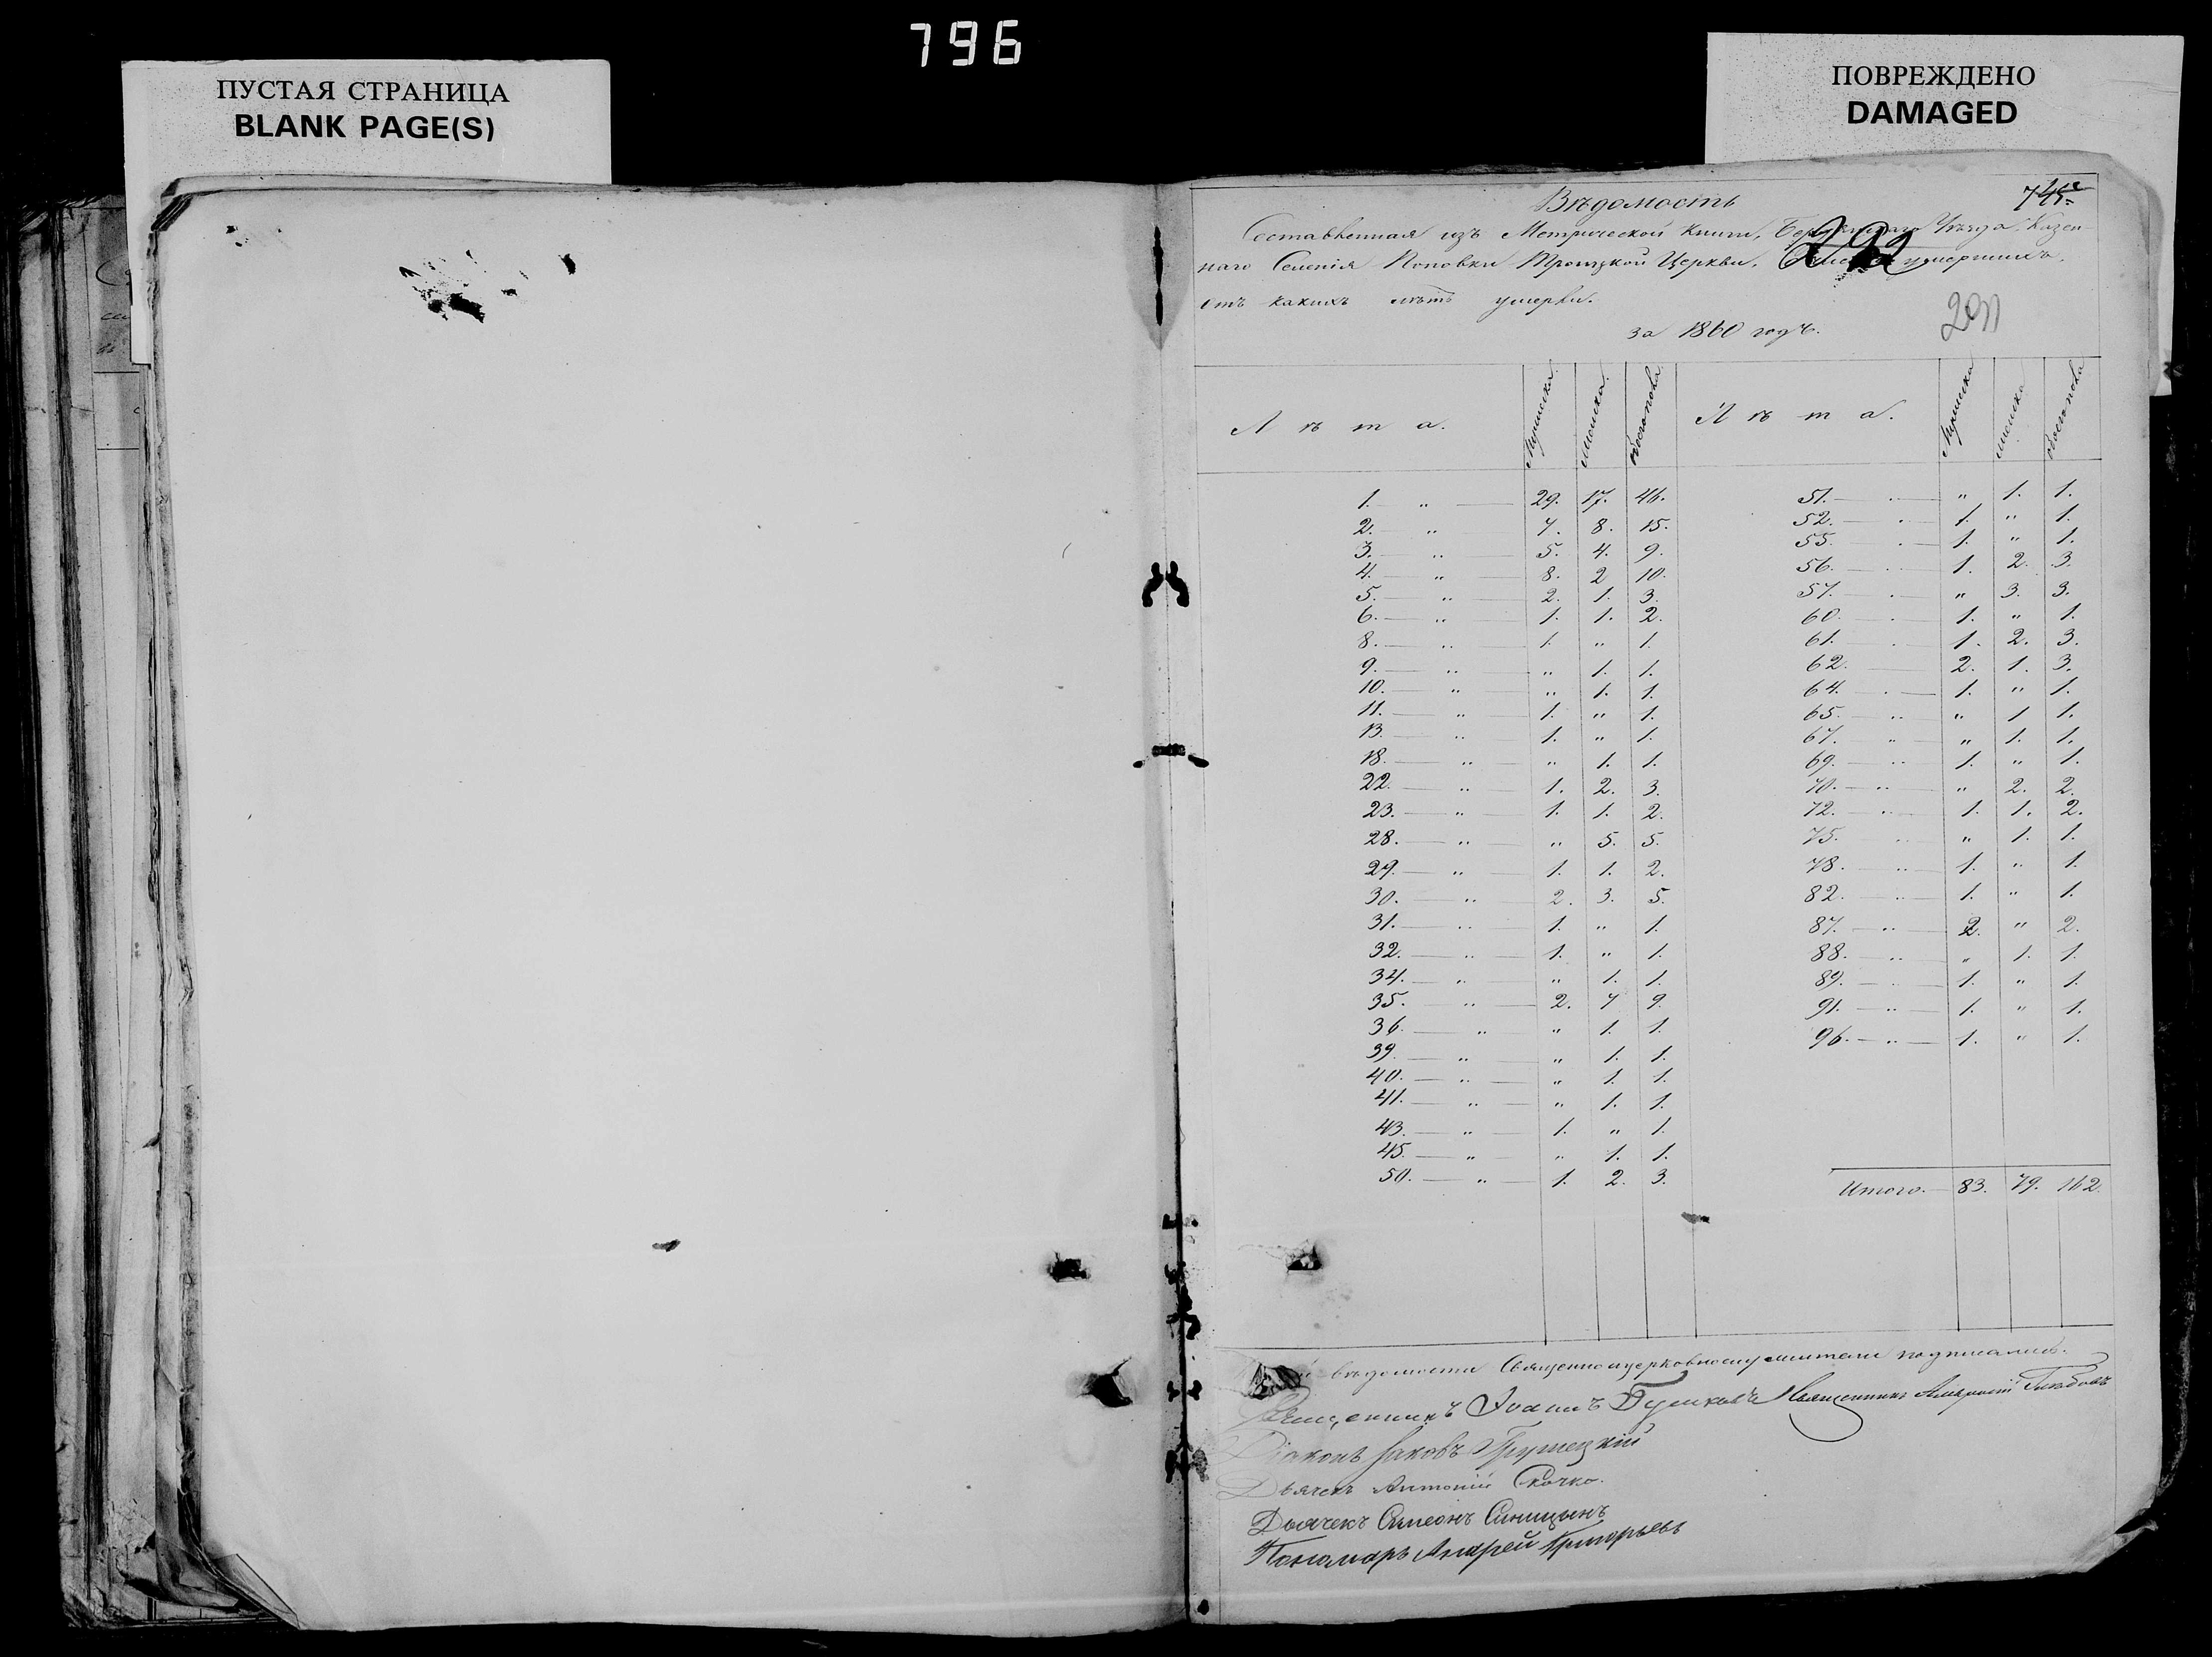 796
ПУСТАЯ СТРАНИЦА
BLANK PAGE(S)
ПОВРЕЖДЕНО
DAMAGED
Вѣдомость
Составленная изъ Метрической книги, Уѣзда, Казен-
наго Селенія Поповки Троицкой Церкви, умершихъ,
отъ какихъ лѣтъ умерли.
за 1860 годъ.
Лѣта. Мужеска. Женска. Обоего пола. Лѣта. Мужеска Женска Обоего пола
1. " — 29. 17. 46. 51. — " 1. 1.
2. " — 7. 8. 15. 52. — 1. " 1.
3. " — 5. 4. 9. 55. — 1. " 1.
4. " — 8. 2 10. 56. — 1. 2. 3.
5. " — 2. 1. 3. 57. — " 3. 3.
6. " — 1. 1. 2. 60. — 1. " 1.
8. " — 1. " 1. 61. — 1. 2. 3.
9. " — " 1. 1. 62. — 2. 1. 3.
10. " — " 1. 1. 64. — 1. " 1.
11. " — 1. " 1. 65. — " 1 1.
13. " — 1. " 1. 67. — " 1. 1.
18. " — " 1. 1. 69. — 1. " 1.
22. " — 1. 2. 3. 70. — " 2. 2.
23. " — 1. 1. 2. 72. — 1. 1. 2.
28. " — " 5. 5. 75. — " 1. 1.
29. " — 1. 1. 2. 78. — 1. " 1.
30. " — 2. 3. 5. 82. — 1. " 1.
31. " — 1. " 1. 87. — 2. " 2.
32. " — 1. " 1. 88. — " 1. 1.
34. " — " 1. 1. 89. — 1. " 1.
35. " — 2. 7 9. 91. — 1. " 1.
36. " — " 1. 1. 96. — 1. " 1.
39. " — " 1. 1.
40. " — " 1. 1.
41. " — " 1. 1.
43. " — 1. " 1.
45. " — " 1. 1.
50. " — 1. 2. 3. Итого. — 83. 79. 162.
вѣдомости Священноцерковнослужители подписались.
Священникъ Іоаннъ Священникъ
Діаконъ Іаковъ
Дьячекъ Антоній Скочко.
Дьячекъ Симеонъ Синицынъ
Пономарь Андрей Григорьевъ